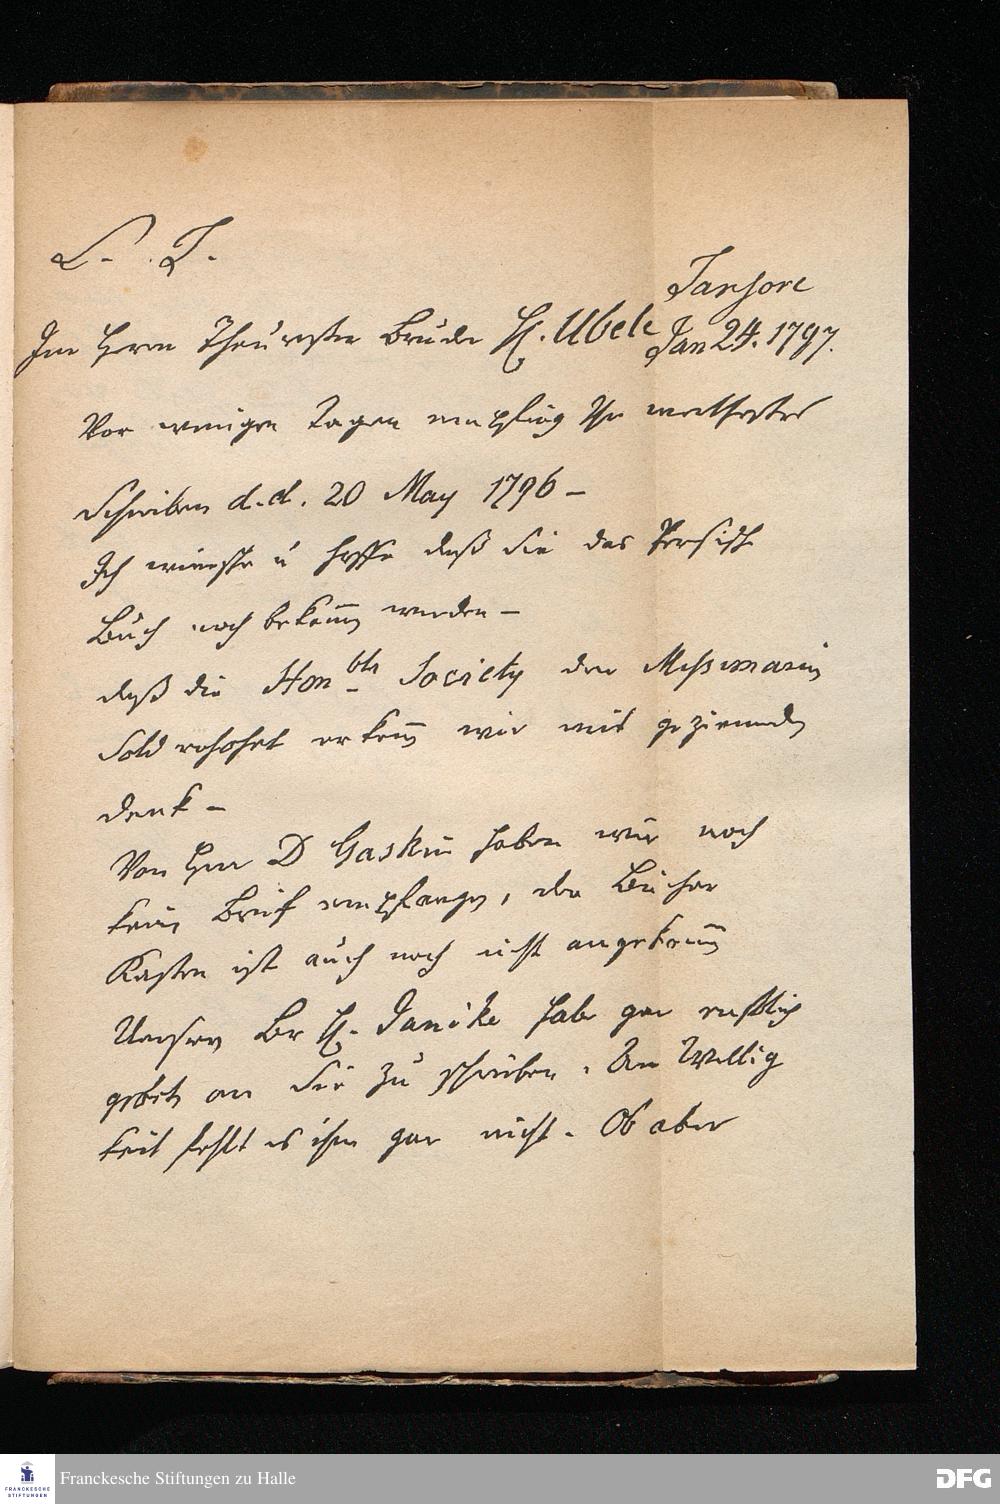 L. J.
Tanjore
Im Herrn Theurester Bruder H. Ubele Jan 24. 1797.
Vor wenigen Tagen empfing Ihr werthestes
Schreiben d.d. 20 May 1796 –
Ich wünsche u hoffe daß Sie das Persische
Buch noch bekomm werden –
daß die Honble Society den Missionarien
Sold erhöhet erkenn wir mit geziemenden
Dank –
Von Herr D Gaskin haben wir noch
kein Brief empfangen, der Bücher
Kasten ist auch noch nicht angekomm
Unsern Br H. Janike habe gar ernstlich
gebeten an Sie zu schreiben. An Willig
keit fehlt es ihm gar nicht. Ob aber
Franckesche Stiftungen zu Halle
FRANCKESCHE
STIFTUNGEN
DFG